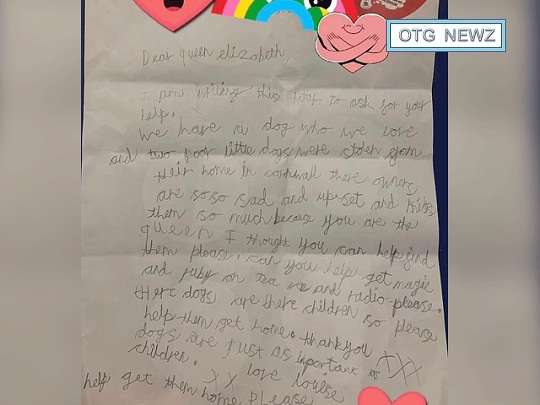 OTG NEWZ
Dear queen elizabeth,
I am writing this today to ask for your
help.
we have a dog who we love
and two poor little dogs were stolen from
their home in cornwall there owners
are so so sad and upset and miss
them so much because you are the
queen I thought you can help find
them please. can you help get magic
and ruby on tea ve and radio please.
there dogs are there children so please
help them get home. thankyou
dogs are just as inportant as XXX
children. love louise
help get them home please XX